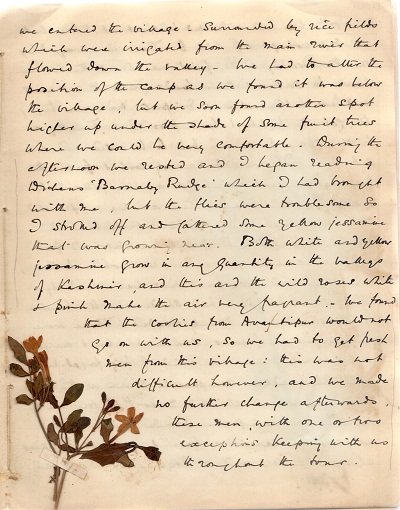 we entered the village: Surrounded by rice fields
which were irrigated from the main river that
flowed down the valley - We had to alter the
position of the camp as we found it was below
the village, but we soon found another spot
higher up under the shade of some fruit trees
where we could be very comfortable. During the
afternoon we rested and I began reading
Dickens "Barnaby Rudge" which I had brought
with me, but the flies were troublesome so
I strolled off and gathered some yellow jessamine
that was growing near. Both white and yellow
jessamine grow in any quantity in the valleys
of Kashmir, and this and the wild roses white
& pink make the air very fragrant. - We found
that the coolies from Avantipur would not
go on with us, so we had to get fresh
men from this village: this was not
difficult however, and we made
no further change afterwards,
these men, with one or two
exceptions keeping with us
throughout the tour.